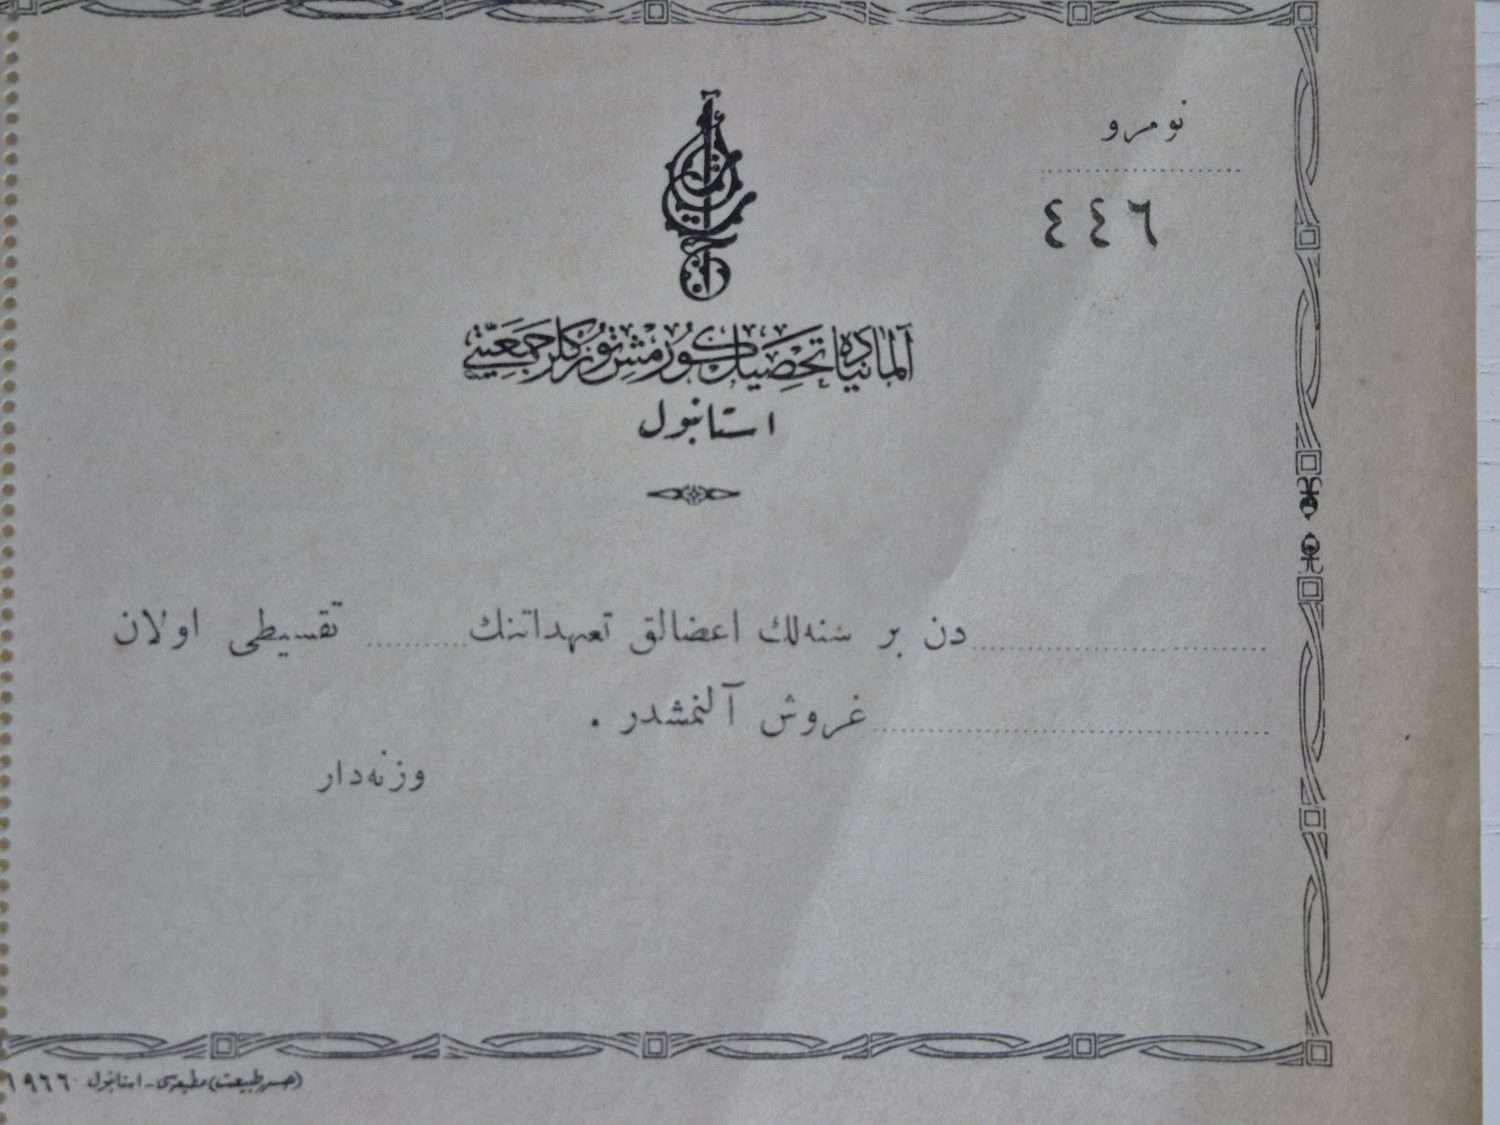 نومرو
٤٤٦
آلمانیاده تحصیل کورمش تورکلر جمعیتی
استانبول
دن بر سنه‌لك اعضالق تعهداتنك تقسیطی اولان
غروش آلنمشدر .
وزنه‌دار
مطبعه‌سی - استانبول ١٩٦٦